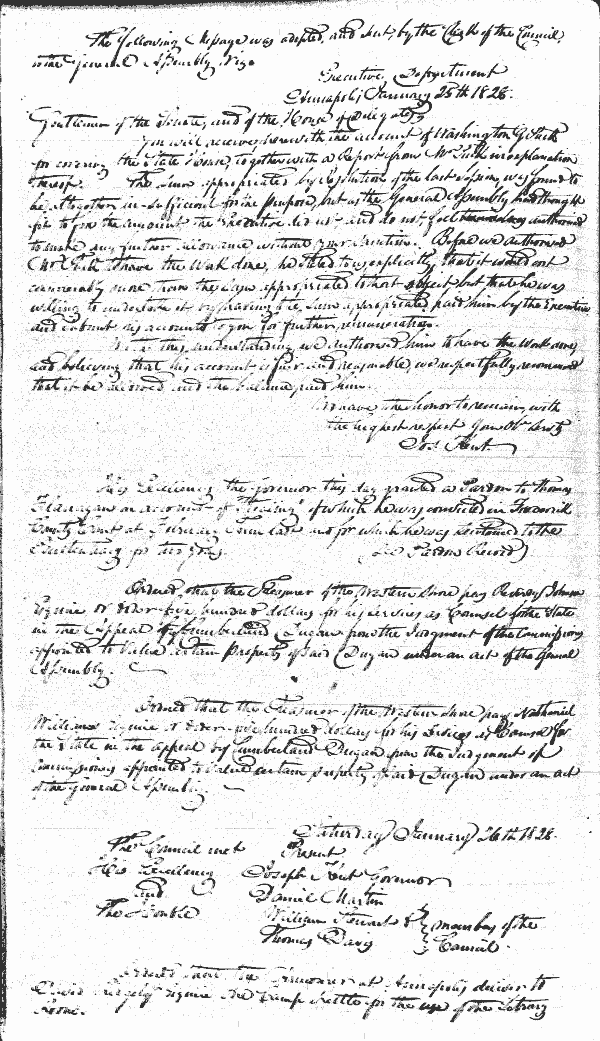 The following Message was adopted, and sent, by the Clerk of the Council,
to the General Assembly Viz.
Executive Department
Annapolis January 25th 1828.
Gentlemen of the Senate, and of the House of Delegates,
You will receive herewith the account of Washington G. Tuck
for covering the State House, together with a Report from Mr Tuck in explanation
thereof. The sum appropriated by Resolution of the last Session, was found to
be altogether insufficient for the purpose, but as the General Assembly had thought
fit to fix the amount the Executive did not and do not feel authorised
to make any further allowance without your sanction. Before we authorised
Mr Tuck to have the Work done, he stated to us explicitly, that it would cost
considerably more than the sum appropriated to that object but that he was
willing to undertake it by having the sum appropriated, paid him by the Executive
and submit his accounts to you for further remuneration.
With this understanding we authorised him to have the Work done,
and believing that his account is fair and reasonable, we respectfully recommend
that it be allowed and the balance paid him.
We have the honor to remain, with
the highest respect Your Obt Servts
Jos. Kent.
His Excellency the Governor this day granted a Pardon to Thomas
Flanagan on account of "Stealing" of which he was convicted in Frederick
County Court at February Term last and for which he was sentenced to the
Penitentiary for two years. (See Pardon Record)
Ordered, that the Treasurer of the Western Shore pay Reverdy Johnson
Esquire or order five hundred dollars for his services as Counsel for the State
in the Appeal of Cumberland Dugan from the Judgment of the Commissions
appointed to value certain property of said Dugan under an act of the General
Assembly.
Ordered that the Treasurer of the Western Shore pay Nathaniel
Williams Esquire or order five hundred dollars for his Services as Counsel for
the State in the Appeal by Cumberland Dugan from the Judgement of
Commissions appointed to value certain property of said Dugan under an act
of the General Assembly.
Saturday January 26th 1828.
The Council met Present
His Excellency Joseph Kent Governor
and Daniel Martin
The Honble William Stewart & members of the
Thomas Davis Council.
Ordered that the Armourer at Annapolis deliver to
David Ridgely Esquire one Camp Kettle for the use of the Library
Room.